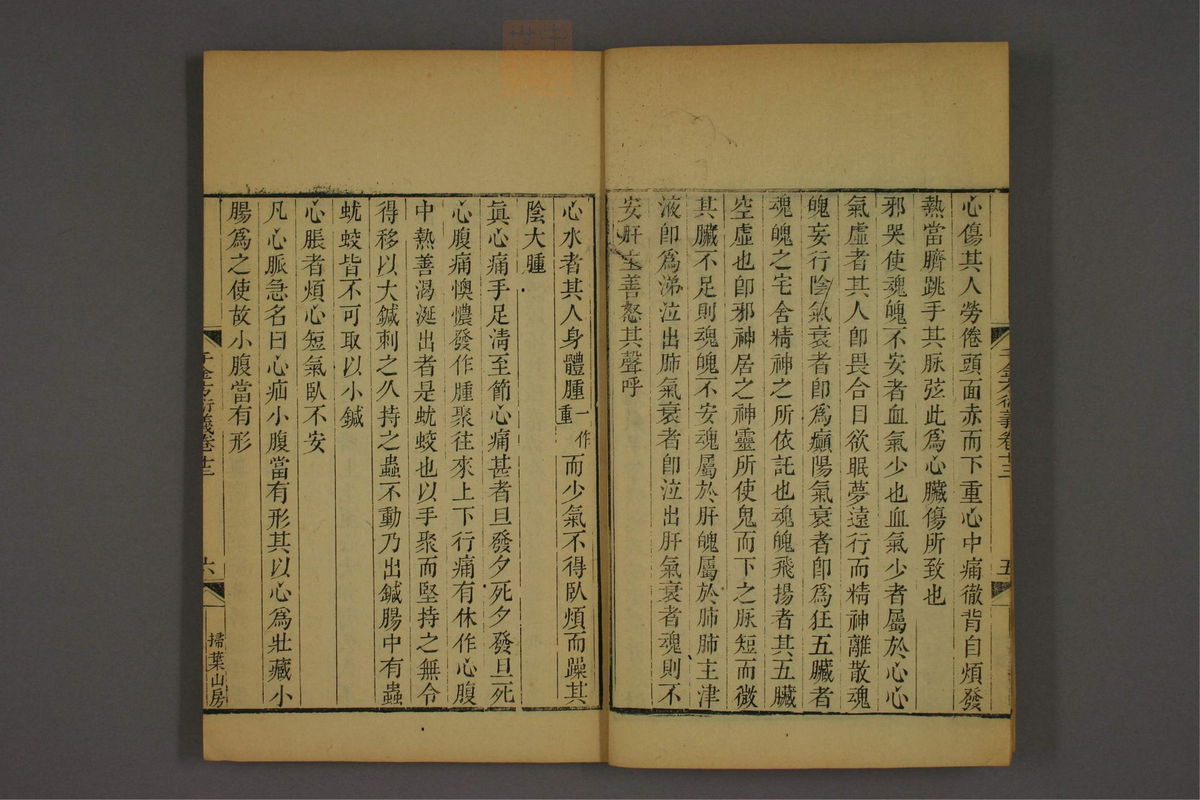 心傷其人勞倦頭面赤而下重心中痛徹背自煩發
熱當臍跳手其脉弦此為心臟傷所致也
邪哭使魂魄不安者血氣少也血氣少者屬於心心
氣虛者其人卽畏合目欲眠夢遠行而精神離散魂
魄妄行陰氣衰者卽為癲陽氣衰者卽為狂五臟者
魂魄之宅舍精神之所依託也魂魄飛揚者其五臟
空虛也卽邪神居之神靈所使鬼而下之脉短而微
其臟不足則魂魄不安魂屬於肝魄屬於肺肺主津
液卽為涕泣出肺氣衰者卽泣出肝氣衰者魂則不
安肝主善怒其聲呼
千金方衍義卷十三
五
心水者其人身體腫一作重而少氣不得臥煩而躁其
陰大腫
眞心痛手足淸至節心痛甚者旦發夕死夕發旦死
心腹痛懊憹發作腫聚往來上下行痛有休作心腹
中熱善渴涎出者是蚘蛟也以手聚而堅持之無令
得移以大鍼刺之久持之蟲不動乃出鍼腸中有蟲
蚘蛟皆不可取以小鍼
心脹者煩心短氣臥不安
凡心脈急名曰心疝小腹當有形其以心為壯藏小
腸為之使故小腹當有形
千金方衍義卷十三
六
掃葉山房